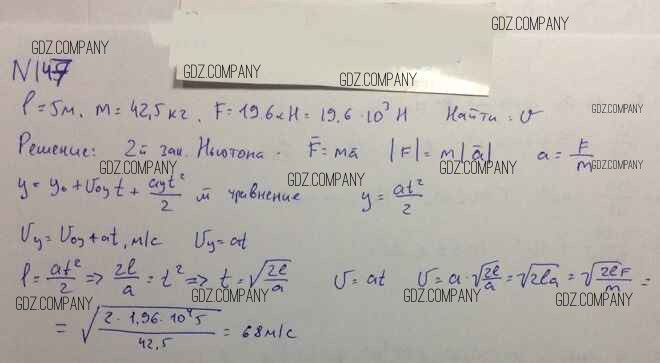 GDZ.COMPANY
GDZ.COMPANY
GDZ.COMPANY GDZ.COMPANY
N147
l = 5м. m = 42,5 кг. F = 19.6 кН = 19.6 · 10³ Н Найти: υ
GDZ.COMPANY
Решение: 2й зак. Ньютона - F̄ = mā |F̄| = m|ā| a = F/m
GDZ.COMPANY GDZ.COMPANY GDZ.COMPANY
y = y₀ + υ₀y t + ayt²/2 м уравнение y = at²/2
υy = υ₀y + at, м/с υy = at
l = at²/2 => 2l/a = t² => t = √(2l/a) υ = at υ = a · √(2l/a) = √(2la) = √(2lF/m) =
GDZ.COMPANY GDZ.COMPANY GDZ.COMPANY GDZ.COMPANY
= √(2 · 1,96 · 10⁴ 5/42,5) = 68 м/с